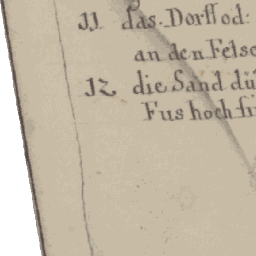 11. das Dorff od:
an den Felse
12. die Sand dü
Fus hoch fr